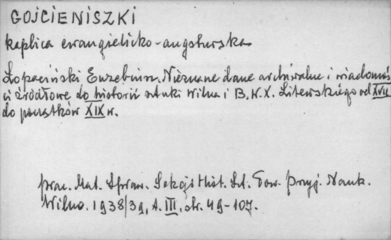 GOJCIENISZKI
kaplica ewangielicko-augsburska
Łopaciński Euzebiusz. Nieznane dane archiwalne i wiadomoś
ci źródłowe do historii sztuki Wilna i B. W. X. Litewskiego od XVII
do początków XIX w.
prac. Mat. Spraw. Sekcji Hist. Szt. Tow. Przyj. Nauk.
Wilno. 1938/39, t. III, str. 49-107.